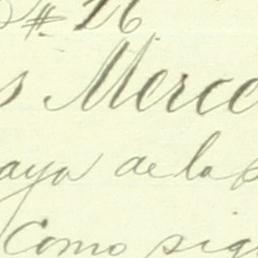 # 26
s Merce
aya de la
Como sig